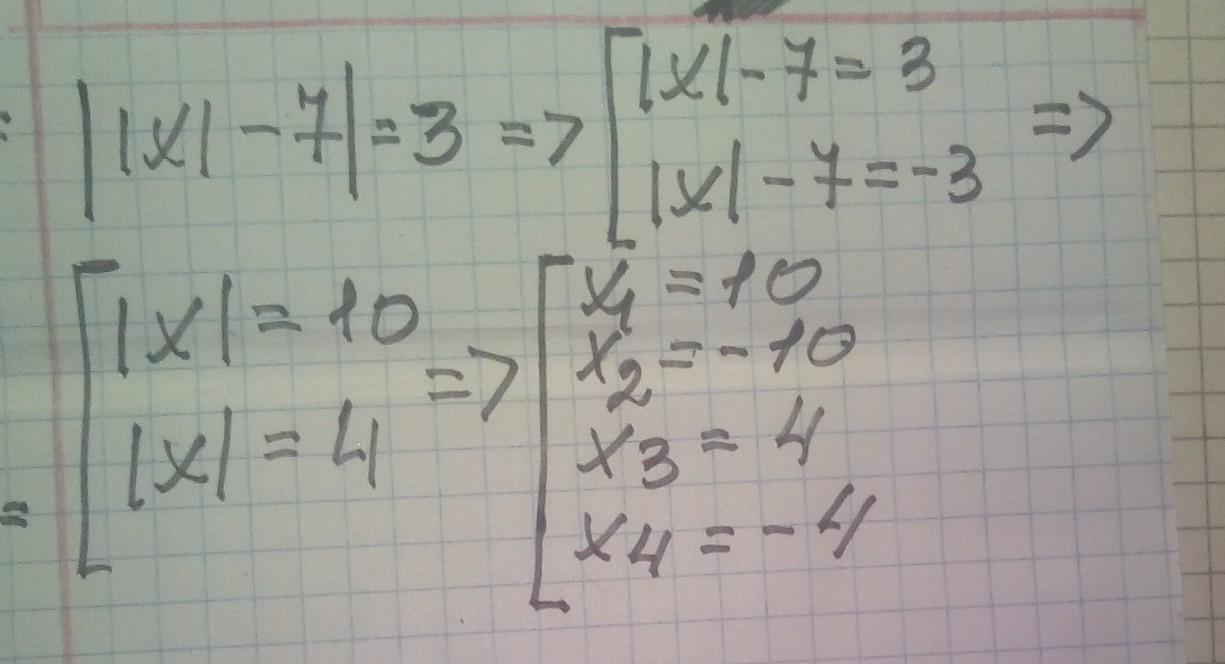 ||x| - 7| = 3 => [ |x| - 7 = 3
|x| - 7 = -3 =>
[ |x| = 10
|x| = 4 =>
[ x1 = 10
x2 = -10
x3 = 4
x4 = -4